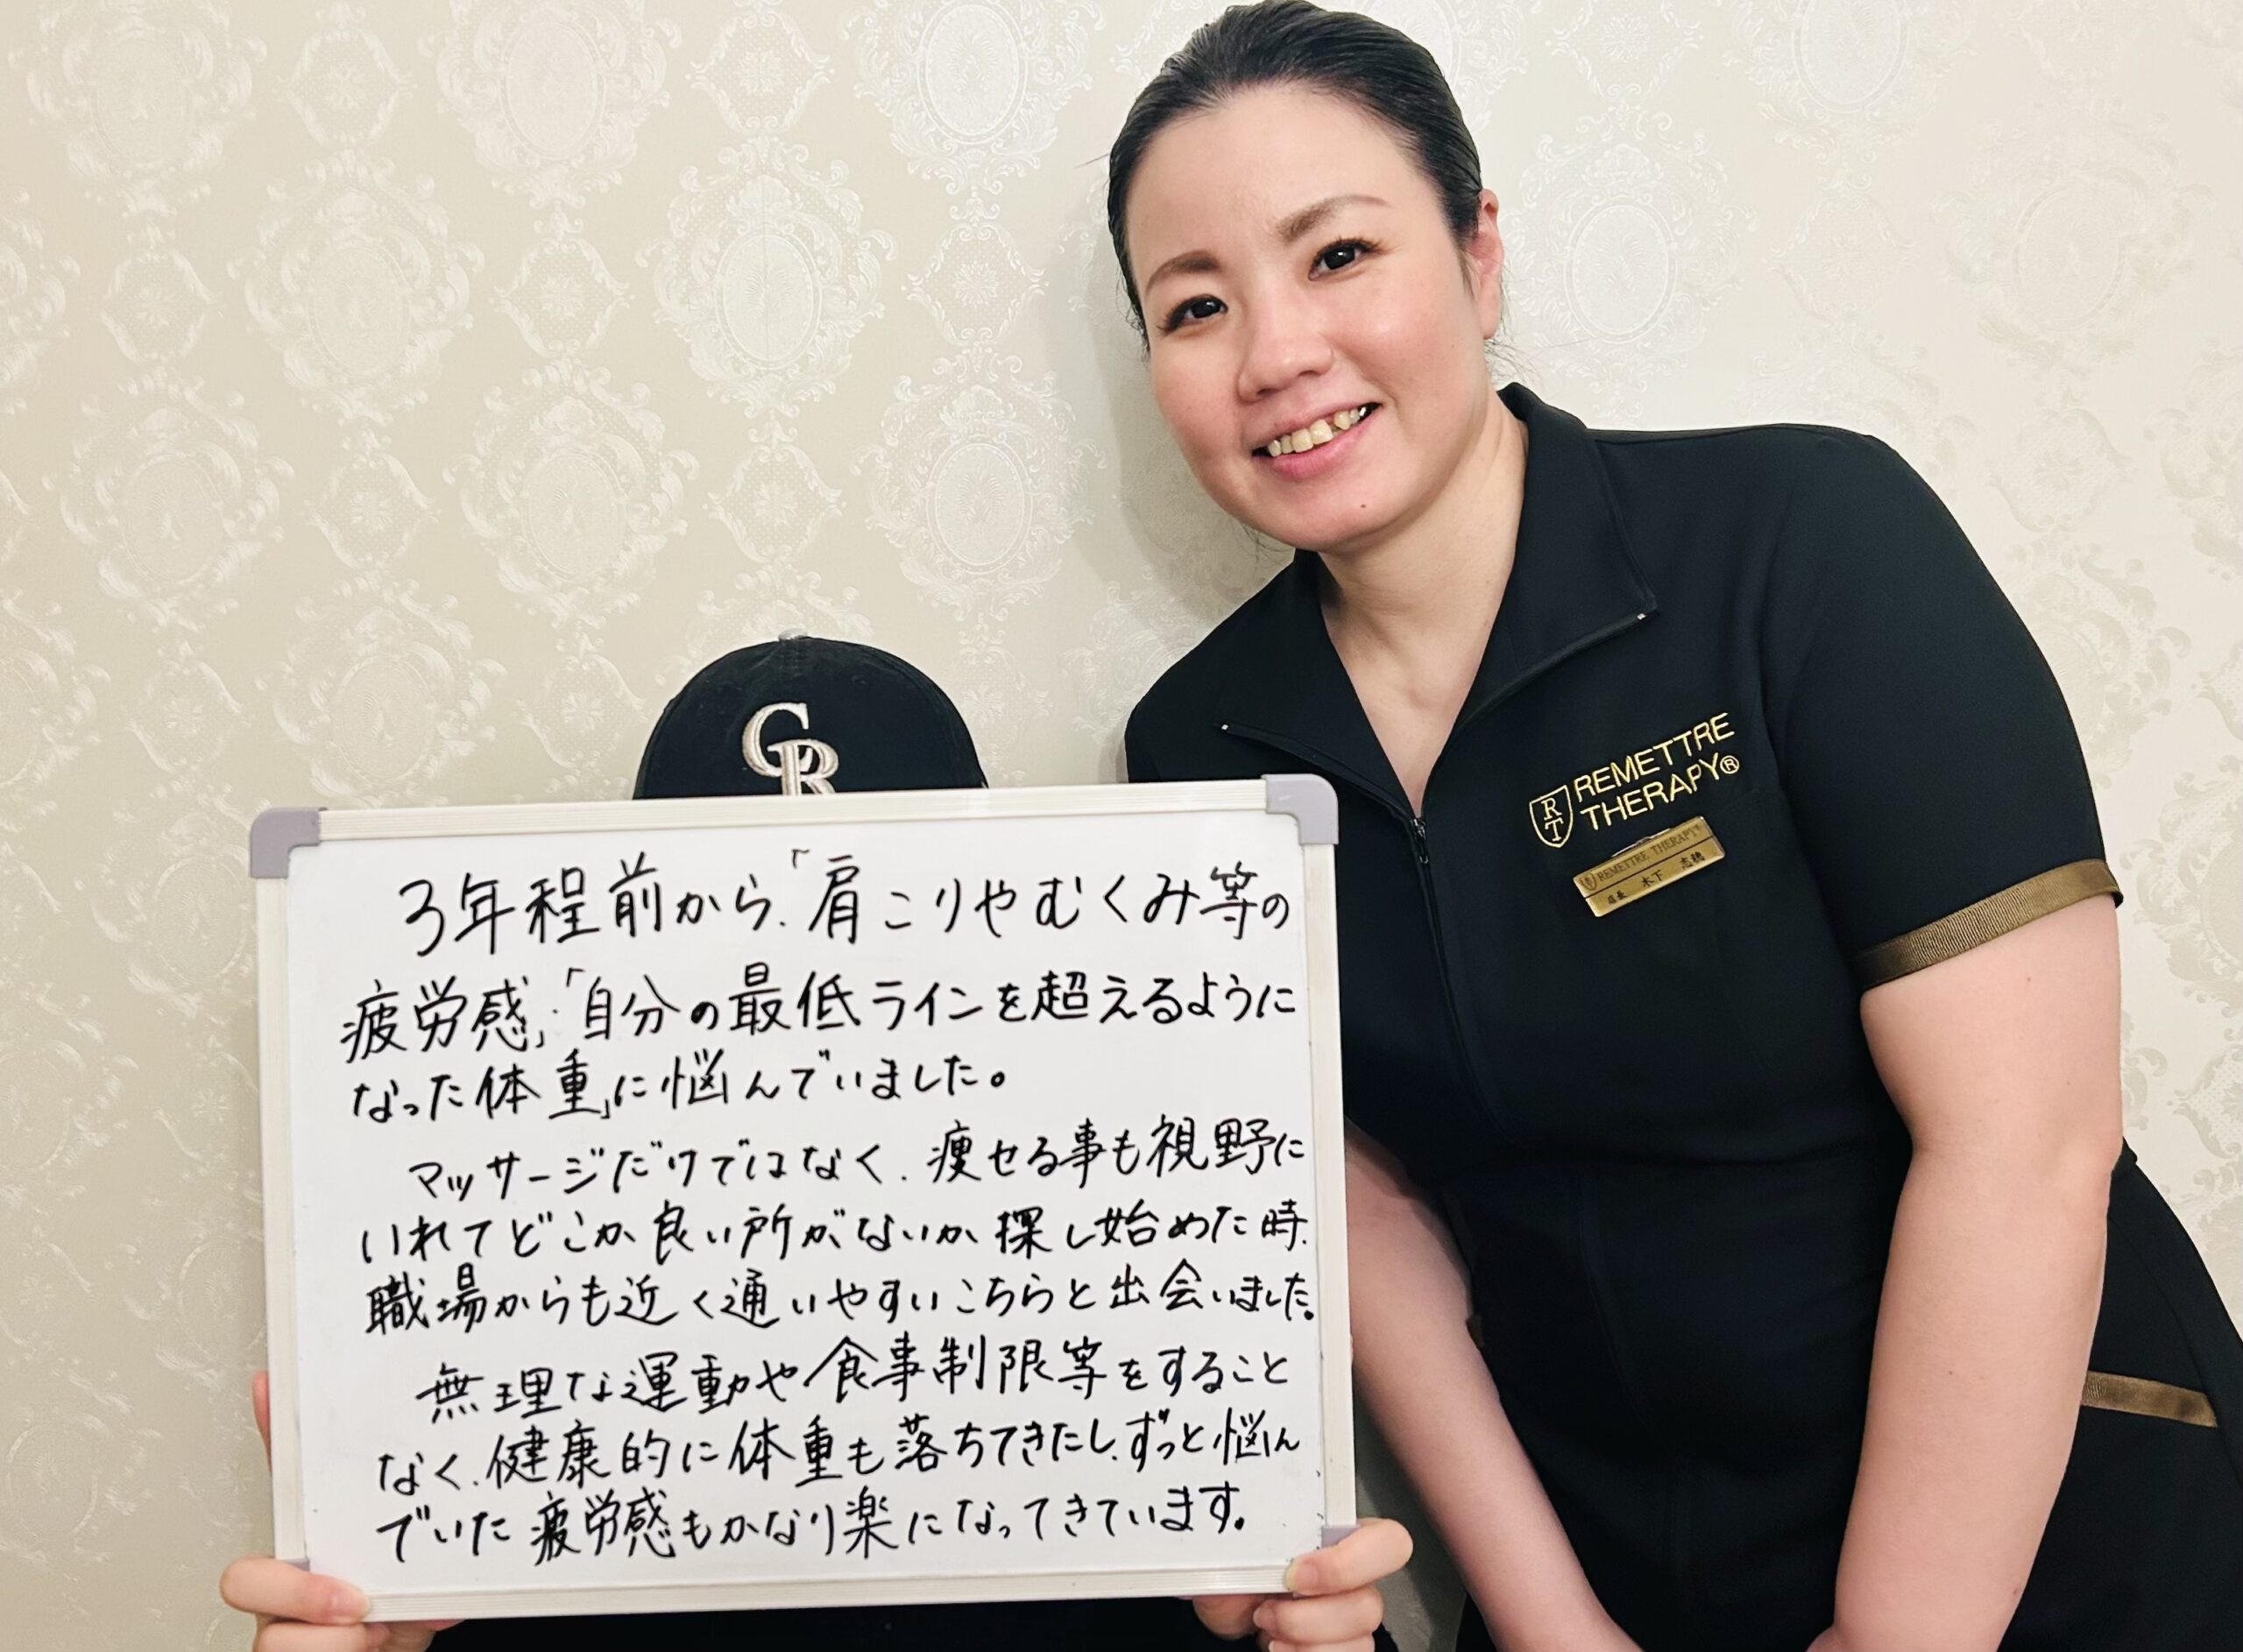 CR
REMETTRE
THERAPY®
RT
REMETTRE THERAPY®
店長 木下 志穂
3年程前から、「肩こりやむくみ等の
疲労感」・「自分の最低ラインを超えるように
なった体重」に悩んでいました。
マッサージだけではなく、痩せる事も視野に
いれてどこか良い所がないか探し始めた時、
職場からも近く通いやすいこちらと出会いました。
無理な運動や食事制限等をすること
なく、健康的に体重も落ちてきたし、ずっと悩ん
でいた疲労感もかなり楽になってきています。